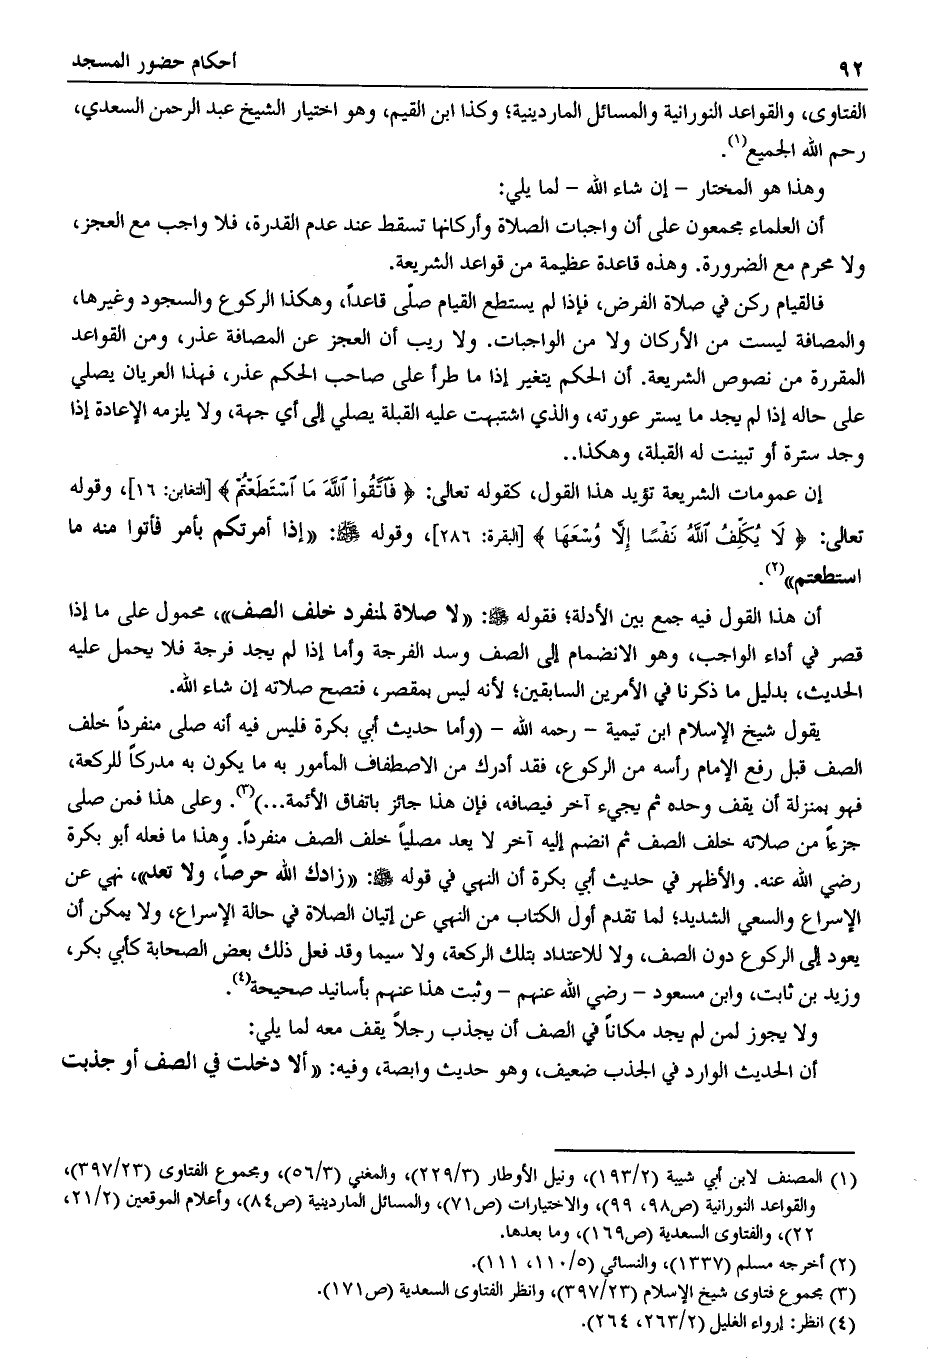 ٩٢
أحكام حضور المسجد
الفتاوى، والقواعد النورانية والمسائل الماردينية؛ وكذا ابن القيم، وهو اختيار الشيخ عبد الرحمن السعدي،
رحم الله الجميع(١).
وهذا هو المختار – إن شاء الله – لما يلي:
أن العلماء مجمعون على أن واجبات الصلاة وأركانها تسقط عند عدم القدرة، فلا واجب مع العجز،
ولا محرم مع الضرورة. وهذه قاعدة عظيمة من قواعد الشريعة.
فالقيام ركن في صلاة الفرض، فإذا لم يستطع القيام صلّى قاعداً، وهكذا الركوع والسجود وغيرها،
والمصافة ليست من الأركان ولا من الواجبات. ولا ريب أن العجز عن المصافة عذر، ومن القواعد
المقررة من نصوص الشريعة. أن الحكم يتغير إذا ما طرأ على صاحب الحكم عذر، فهذا العريان يصلي
على حاله إذا لم يجد ما يستر عورته، والذي اشتبهت عليه القبلة يصلي إلى أي جهة، ولا يلزمه الإعادة إذا
وجد سترة أو تبينت له القبلة، وهكذا..
إن عمومات الشريعة تؤيد هذا القول، كقوله تعالى: ﴿ فَٱتَّقُواْ ٱللَّهَ مَا ٱسْتَطَعْتُمْ ﴾ [التغابن: ١٦]، وقوله
تعالى: ﴿ لَا يُكَلِّفُ ٱللَّهُ نَفْسًا إِلَّا وُسْعَهَا ﴾ [البقرة: ٢٨٦]، وقوله ﷺ: «إذا أمرتكم بأمر فأتوا منه ما
استطعتم»(٢).
أن هذا القول فيه جمع بين الأدلة؛ فقوله ﷺ: «لا صلاة لمنفرد خلف الصف»، محمول على ما إذا
قصر في أداء الواجب، وهو الانضمام إلى الصف وسد الفرجة وأما إذا لم يجد فرجة فلا يحمل عليه
الحديث، بدليل ما ذكرنا في الأمرين السابقين؛ لأنه ليس بمقصر، فتصح صلاته إن شاء الله.
يقول شيخ الإسلام ابن تيمية – رحمه الله – (وأما حديث أبي بكرة فليس فيه أنه صلى منفرداً خلف
الصف قبل رفع الإمام رأسه من الركوع، فقد أدرك من الاصطفاف المأمور به ما يكون به مدركاً للركعة،
فهو بمنزلة أن يقف وحده ثم يجيء آخر فيصافه، فإن هذا جائز باتفاق الأئمة...)(٣). وعلى هذا فمن صلى
جزءاً من صلاته خلف الصف ثم انضم إليه آخر لا يعد مصلياً خلف الصف منفرداً. وهذا ما فعله أبو بكرة
رضي الله عنه. والأظهر في حديث أبي بكرة أن النهي في قوله ﷺ: «زادك الله حرصاً، ولا تعد»، نهي عن
الإسراع والسعي الشديد؛ لما تقدم أول الكتاب من النهي عن إتيان الصلاة في حالة الإسراع، ولا يمكن أن
يعود إلى الركوع دون الصف، ولا للاعتداد بتلك الركعة، ولا سيما وقد فعل ذلك بعض الصحابة كأبي بكر،
وزيد بن ثابت، وابن مسعود – رضي الله عنهم – وثبت هذا عنهم بأسانيد صحيحة(٤).
ولا يجوز لمن لم يجد مكاناً في الصف أن يجذب رجلاً يقف معه لما يلي:
أن الحديث الوارد في الجذب ضعيف، وهو حديث وابصة، وفيه: «ألا دخلت في الصف أو جذبت
(١) المصنف لابن أبي شيبة (١٩٣/٢)، ونيل الأوطار (٢٢٩/٣)، والمغني (٥٦/٣)، ومجموع الفتاوى (٣٩٧/٢٣)،
والقواعد النورانية (ص٩٨، ٩٩)، والاختيارات (ص٧١)، والمسائل الماردينية (ص٨٤)، وأعلام الموقعين (٢١/٢،
٢٢)، والفتاوى السعدية (ص١٦٩)، وما بعدها.
(٢) أخرجه مسلم (١٣٣٧)، والنسائي (١١٠/٥، ١١١).
(٣) مجموع فتاوى شيخ الإسلام (٣٩٧/٢٣)، وانظر الفتاوى السعدية (ص١٧١).
(٤) انظر: إرواء الغليل (٢٦٣/٢، ٢٦٤).